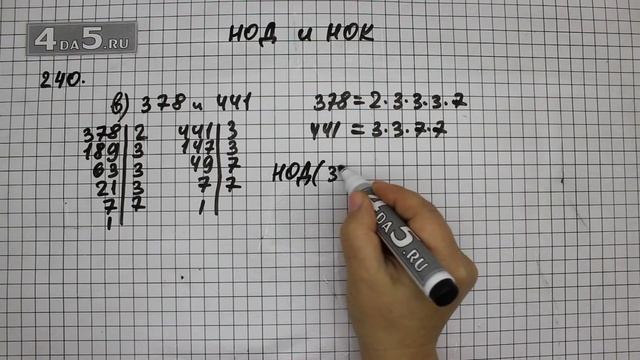 4DA5.RU
НОД и НОК
240.
в) 378 и 441
378 | 2
189 | 3
63 | 3
21 | 3
7 | 7
1
441 | 3
147 | 3
49 | 7
7 | 7
1
378 = 2·3·3·3·7
441 = 3·3·7·7
НОД(3
4DA5.RU